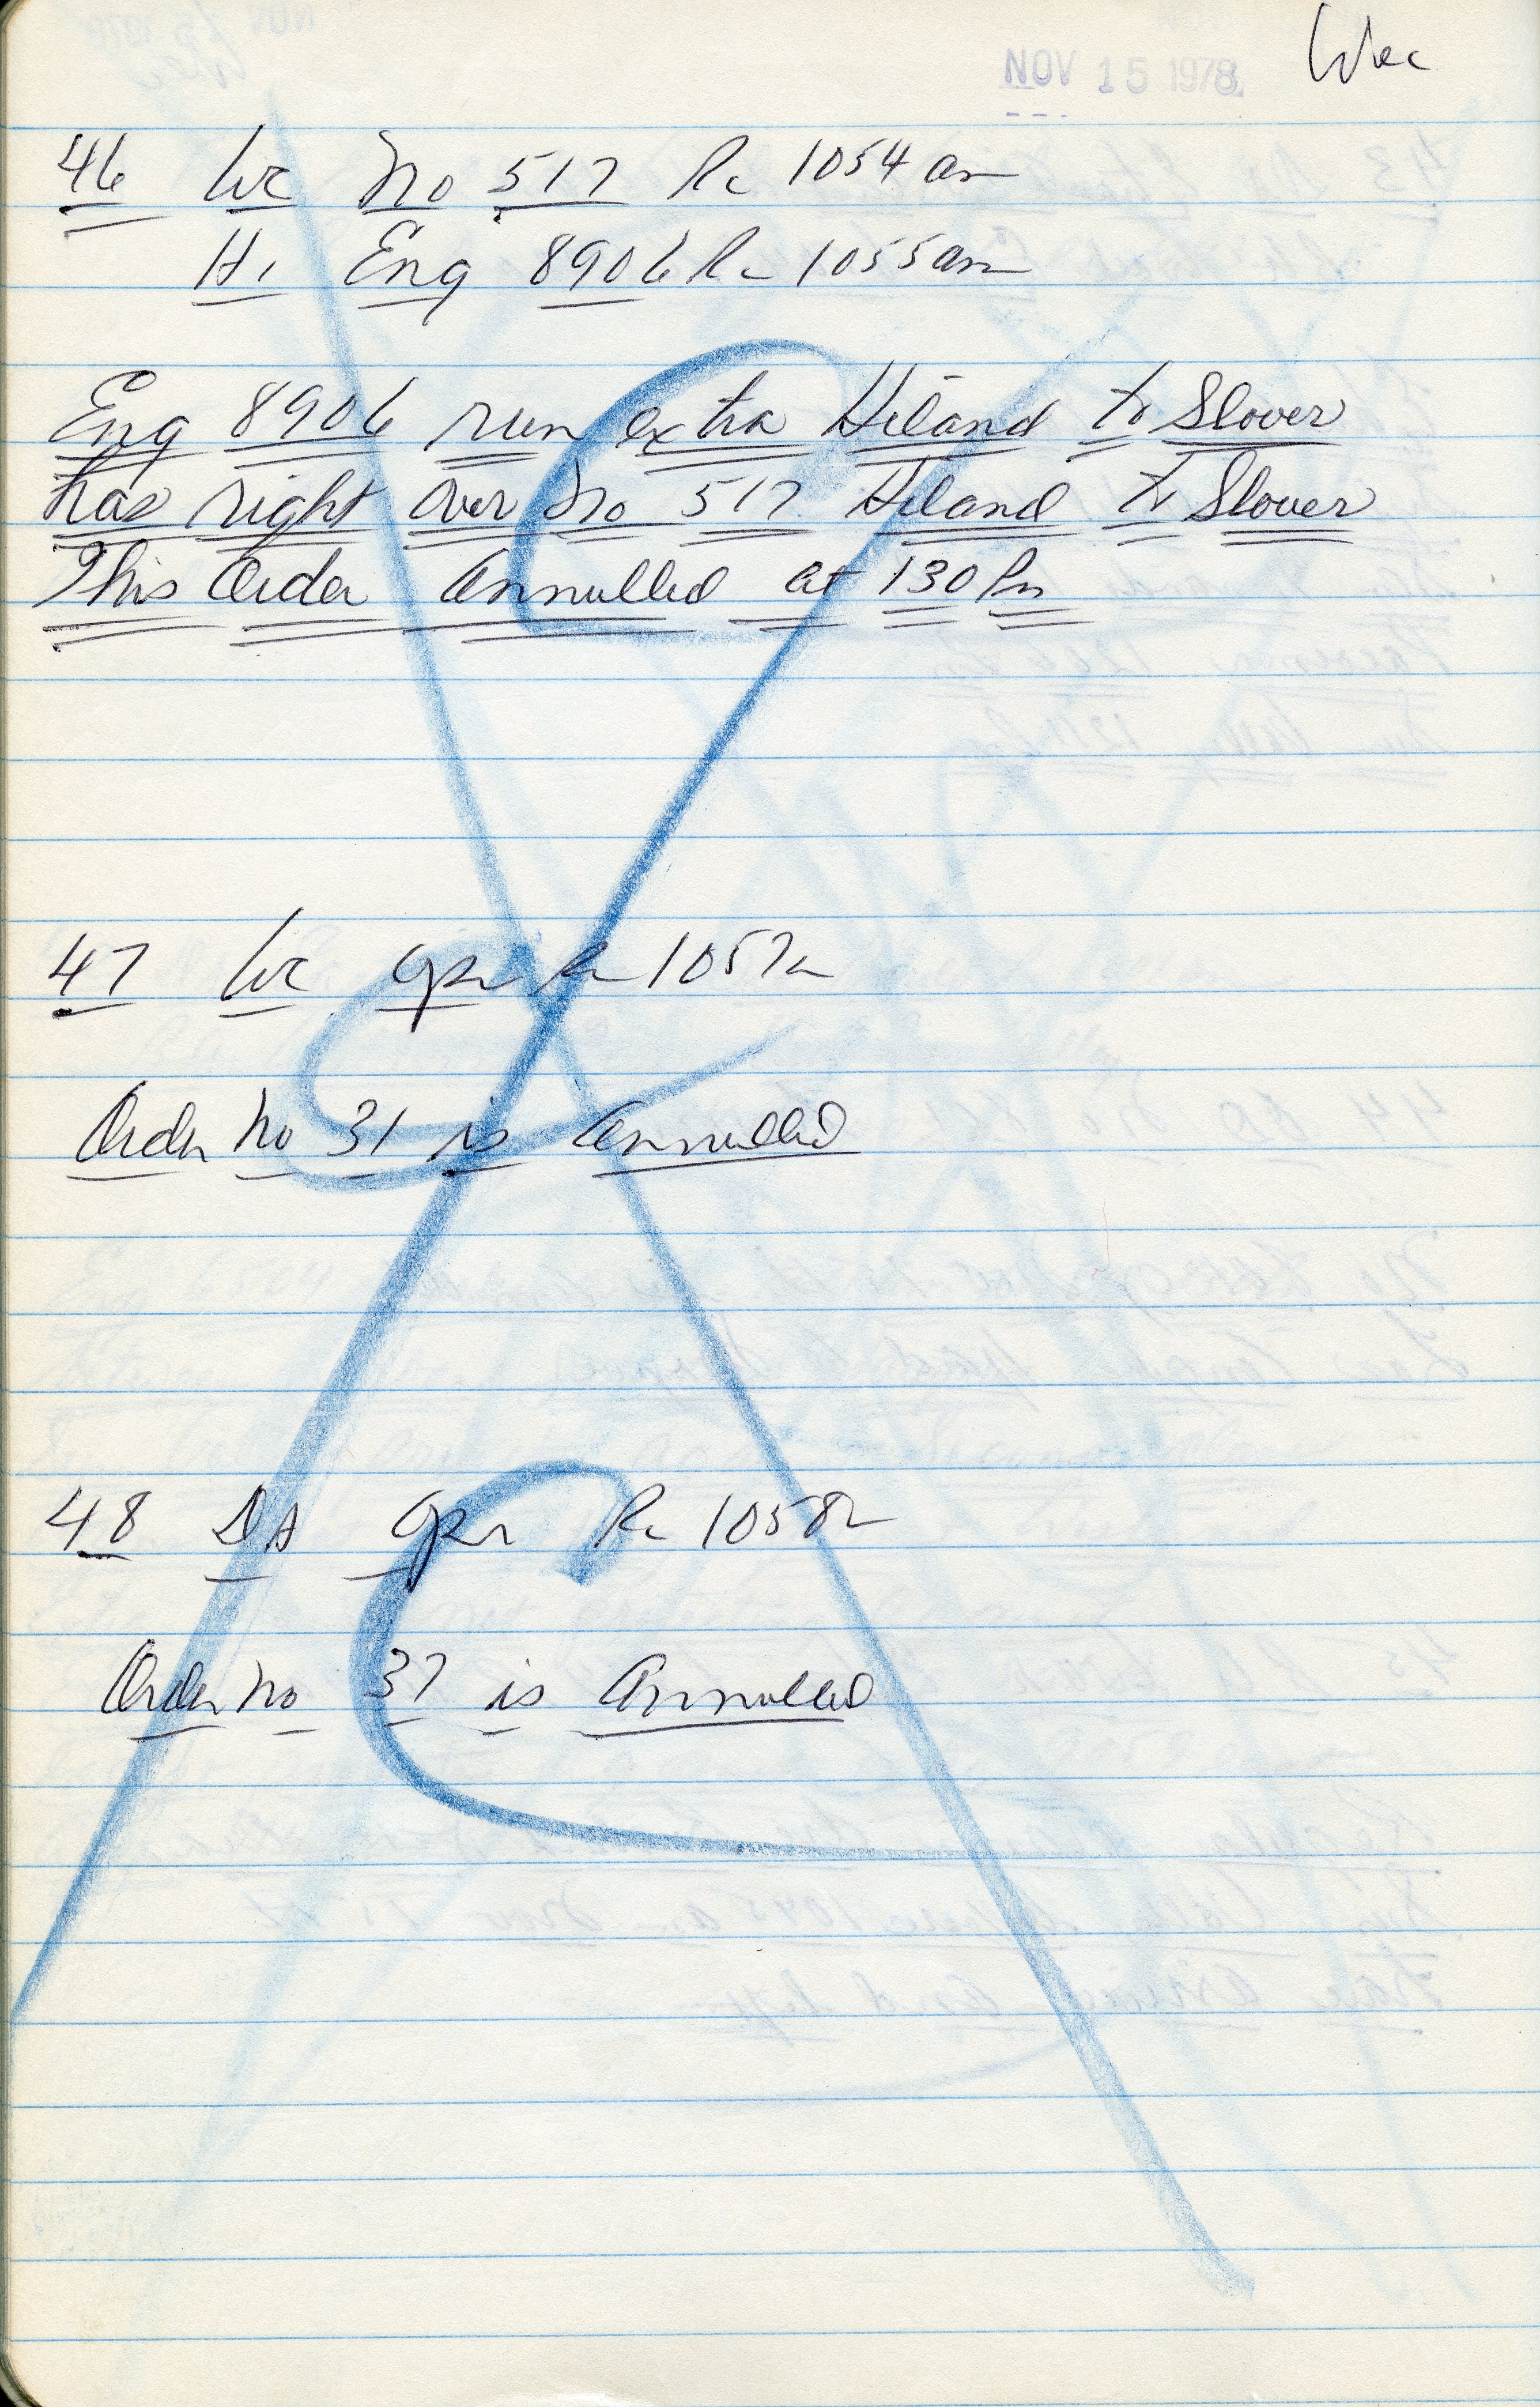 NOV 15 1978 Wec
46 WC No 517 Rc 1054 am
HI Eng 8906 Rc 1055 am
Eng 8906 run extra Hiland to Slover
has right over No 517 Hiland to Slover
This Order Annulled at 130 Pm
47 WC Opr Rc 1057a
Order No 31 is Annulled
48 DA Opr Rc 1058a
Order No 37 is Annulled